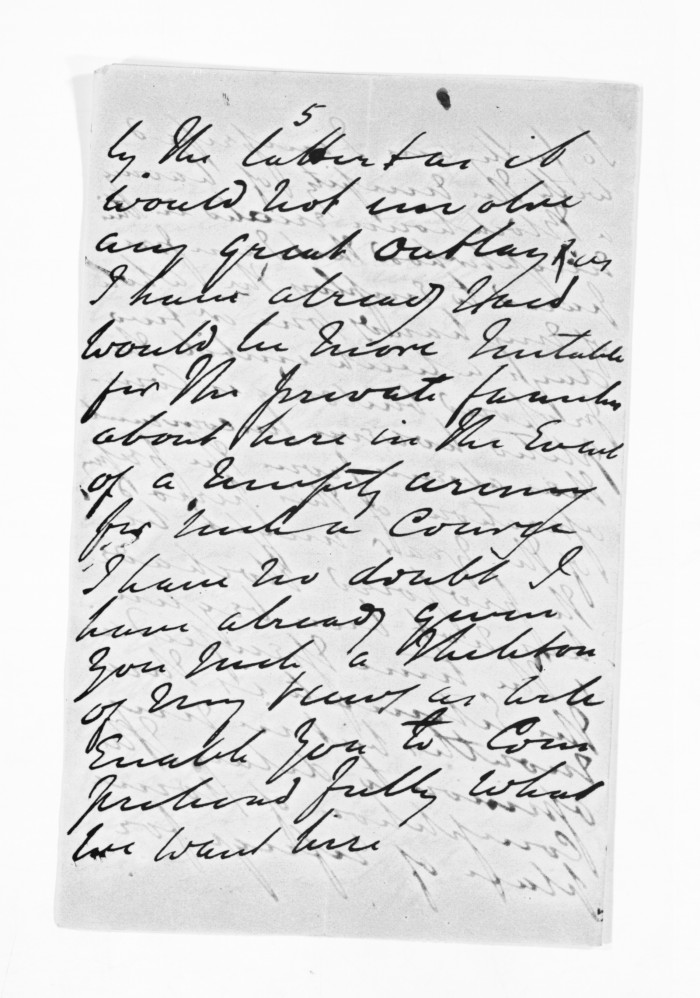 5
by the latter & as it
would not involve
any great outlay & as
I have already said
would be more suitable
for the private families
about here in the Event
of a necessity arising
for such a Course
I have no doubt I
have already given
you such a Skeleton
of my views as will
Enable you to Com
prehend fully what
we want here